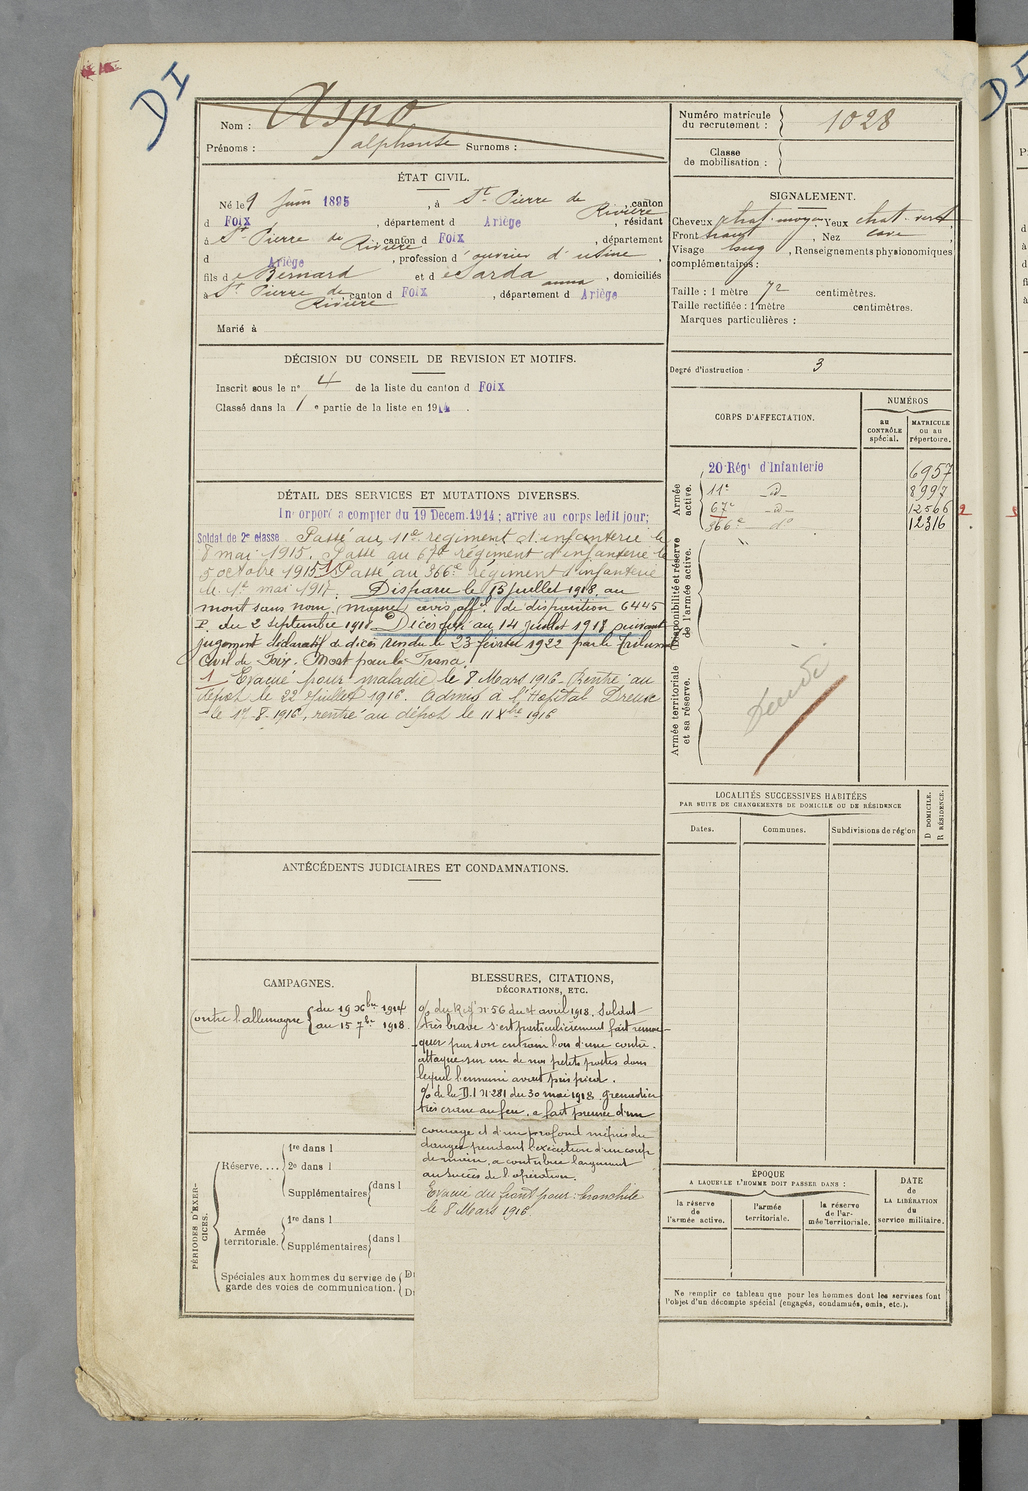 D I
Nom : Aspo
Prénoms : alphonse Surnoms :
Numéro matricule du recrutement : 1028
Classe de mobilisation :
ÉTAT CIVIL.
Né le 9 Juin 1895, à St Pierre de Rivière, canton
d Foix, département d Ariège, résidant
à St Pierre de Rivière, canton d Foix, département
d Ariège, profession d'ouvrier d'usine,
fils de Bernard et de Sarda anna, domiciliés
à St Pierre de Rivière, canton d Foix, département d Ariège
Marié à
SIGNALEMENT.
Cheveux chat. moyen. Yeux chat. vert
Front haut, Nez cave,
Visage long, Renseignements physionomiques
complémentaires :
Taille : 1 mètre 72 centimètres.
Taille rectifiée : 1 mètre centimètres.
Marques particulières :
Degré d'instruction · 3
DÉCISION DU CONSEIL DE REVISION ET MOTIFS.
Inscrit sous le n° 4 de la liste du canton d Foix
Classé dans la 1 e partie de la liste en 1914.
CORPS D'AFFECTATION.
NUMÉROS
au CONTRÔLE spécial.
MATRICULE ou au répertoire.
Armée active.
20 Régt d'Infanterie 6957
11e -d- 8997
67e -d- 12566
366e d° 12316
Disponibilité et réserve de l'armée active.
Armée territoriale et sa réserve.
DÉTAIL DES SERVICES ET MUTATIONS DIVERSES.
Incorporé a compter du 19 Décem. 1914 ; arrive au corps ledit jour;
Soldat de 2e classe. Passé au 11e régiment d'infanterie le
8 mai 1915. Passé au 67e régiment d'infanterie le
5 octobre 1915 1) Passé au 366e régiment d'infanterie
le 1er mai 1917. Disparu le 15 juillet 1918 au
mont sans nom (marne) avis offel de disparition 6445
P. du 2 septembre 1918. Décès fixé au 14 juillet 1918 suivant
jugement déclaratif de décès rendu le 23 février 1922 par le Tribunal
Civil de Foix. Mort pour la France.
1 Evacué pour maladie le 8 Mars 1916 - Rentré au
dépôt le 22 Juillet 1916. Admis à l'Hopital Dreux
le 17-8-1916, rentré au dépôt le 11 Xbre 1916
LOCALITÉS SUCCESSIVES HABITÉES
PAR SUITE DE CHANGEMENTS DE DOMICILE OU DE RÉSIDENCE
Dates.
Communes.
Subdivisions de région
D DOMICILE.
R RÉSIDENCE.
ANTÉCÉDENTS JUDICIAIRES ET CONDAMNATIONS.
CAMPAGNES.
Contre l'allemagne { du 19 Xbre 1914
au 15 7bre 1918
BLESSURES, CITATIONS,
DÉCORATIONS, ETC.
% du Régt n° 56 du 4 avril 1918. Soldat
très brave s'est particulièrement fait remar-
quer par son entrain lors d'une contre-
attaque sur un de nos petits postes dans
lequel l'ennemi avait pris pied.
% de la D.I n° 281 du 30 mai 1918. Grenadier
très crane au feu. a fait preuve d'un
courage et d'un profond mépris du
danger pendant l'exécution d'un coup
de main, a contribué largement
au succès de l'opération.
Evacué du front pour : bronchite
le 8 Mars 1916
PÉRIODES D'EXERCICES.
Réserve. ...
1re dans l
2e dans l
Supplémentaires dans l
Armée territoriale.
1re dans l
Supplémentaires dans l
Spéciales aux hommes du service de
garde des voies de communication.
ÉPOQUE
A LAQUELLE L'HOMME DOIT PASSER DANS :
la réserve de l'armée active.
l'armée territoriale.
la réserve de l'armée territoriale.
DATE de LA LIBÉRATION du service militaire.
Ne remplir ce tableau que pour les hommes dont les services font
l'objet d'un décompte spécial (engagés, condamnés, omis, etc.).